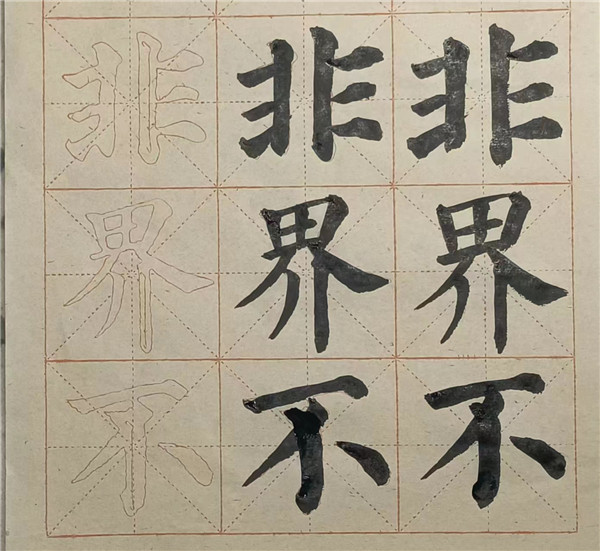 非非非
界界界
不不不